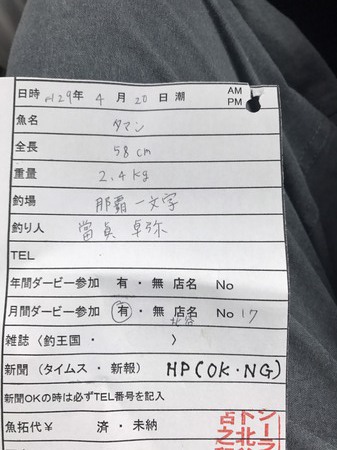 日時 H29年 4月 20日 潮 AM PM
魚名 タマン
全長 58cm
重量 2.4kg
釣場 那覇一文字
釣り人 當真 卓弥
TEL
年間ダービー参加 有・無 店名 No
月間ダービー参加 有・無 店名 北谷 No 17
雑誌〈釣王国・ 〉
新聞(タイムス・新報) HP(OK・NG)
新聞OKの時は必ずTEL番号を記入
魚拓代¥ 済・未納
シーラ
ト北
店之